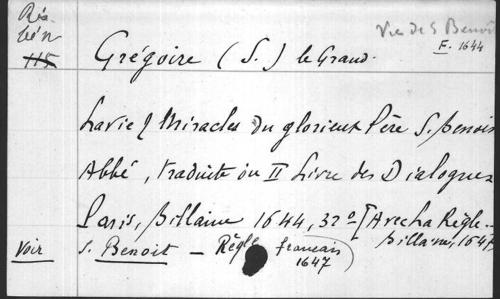 Rés.
bén
115
Vie de S Benoit
F. 1644
Grégoire (S.) le Grand.
La vie & Miracles du glorieux Père S. Benois
Abbé, traduite du II Livre des Dialogues
Paris, Billaine 1644, 32° [Avec La Règle -
Billaine, 1647
Voir S. Benoit - Règle français
1647)